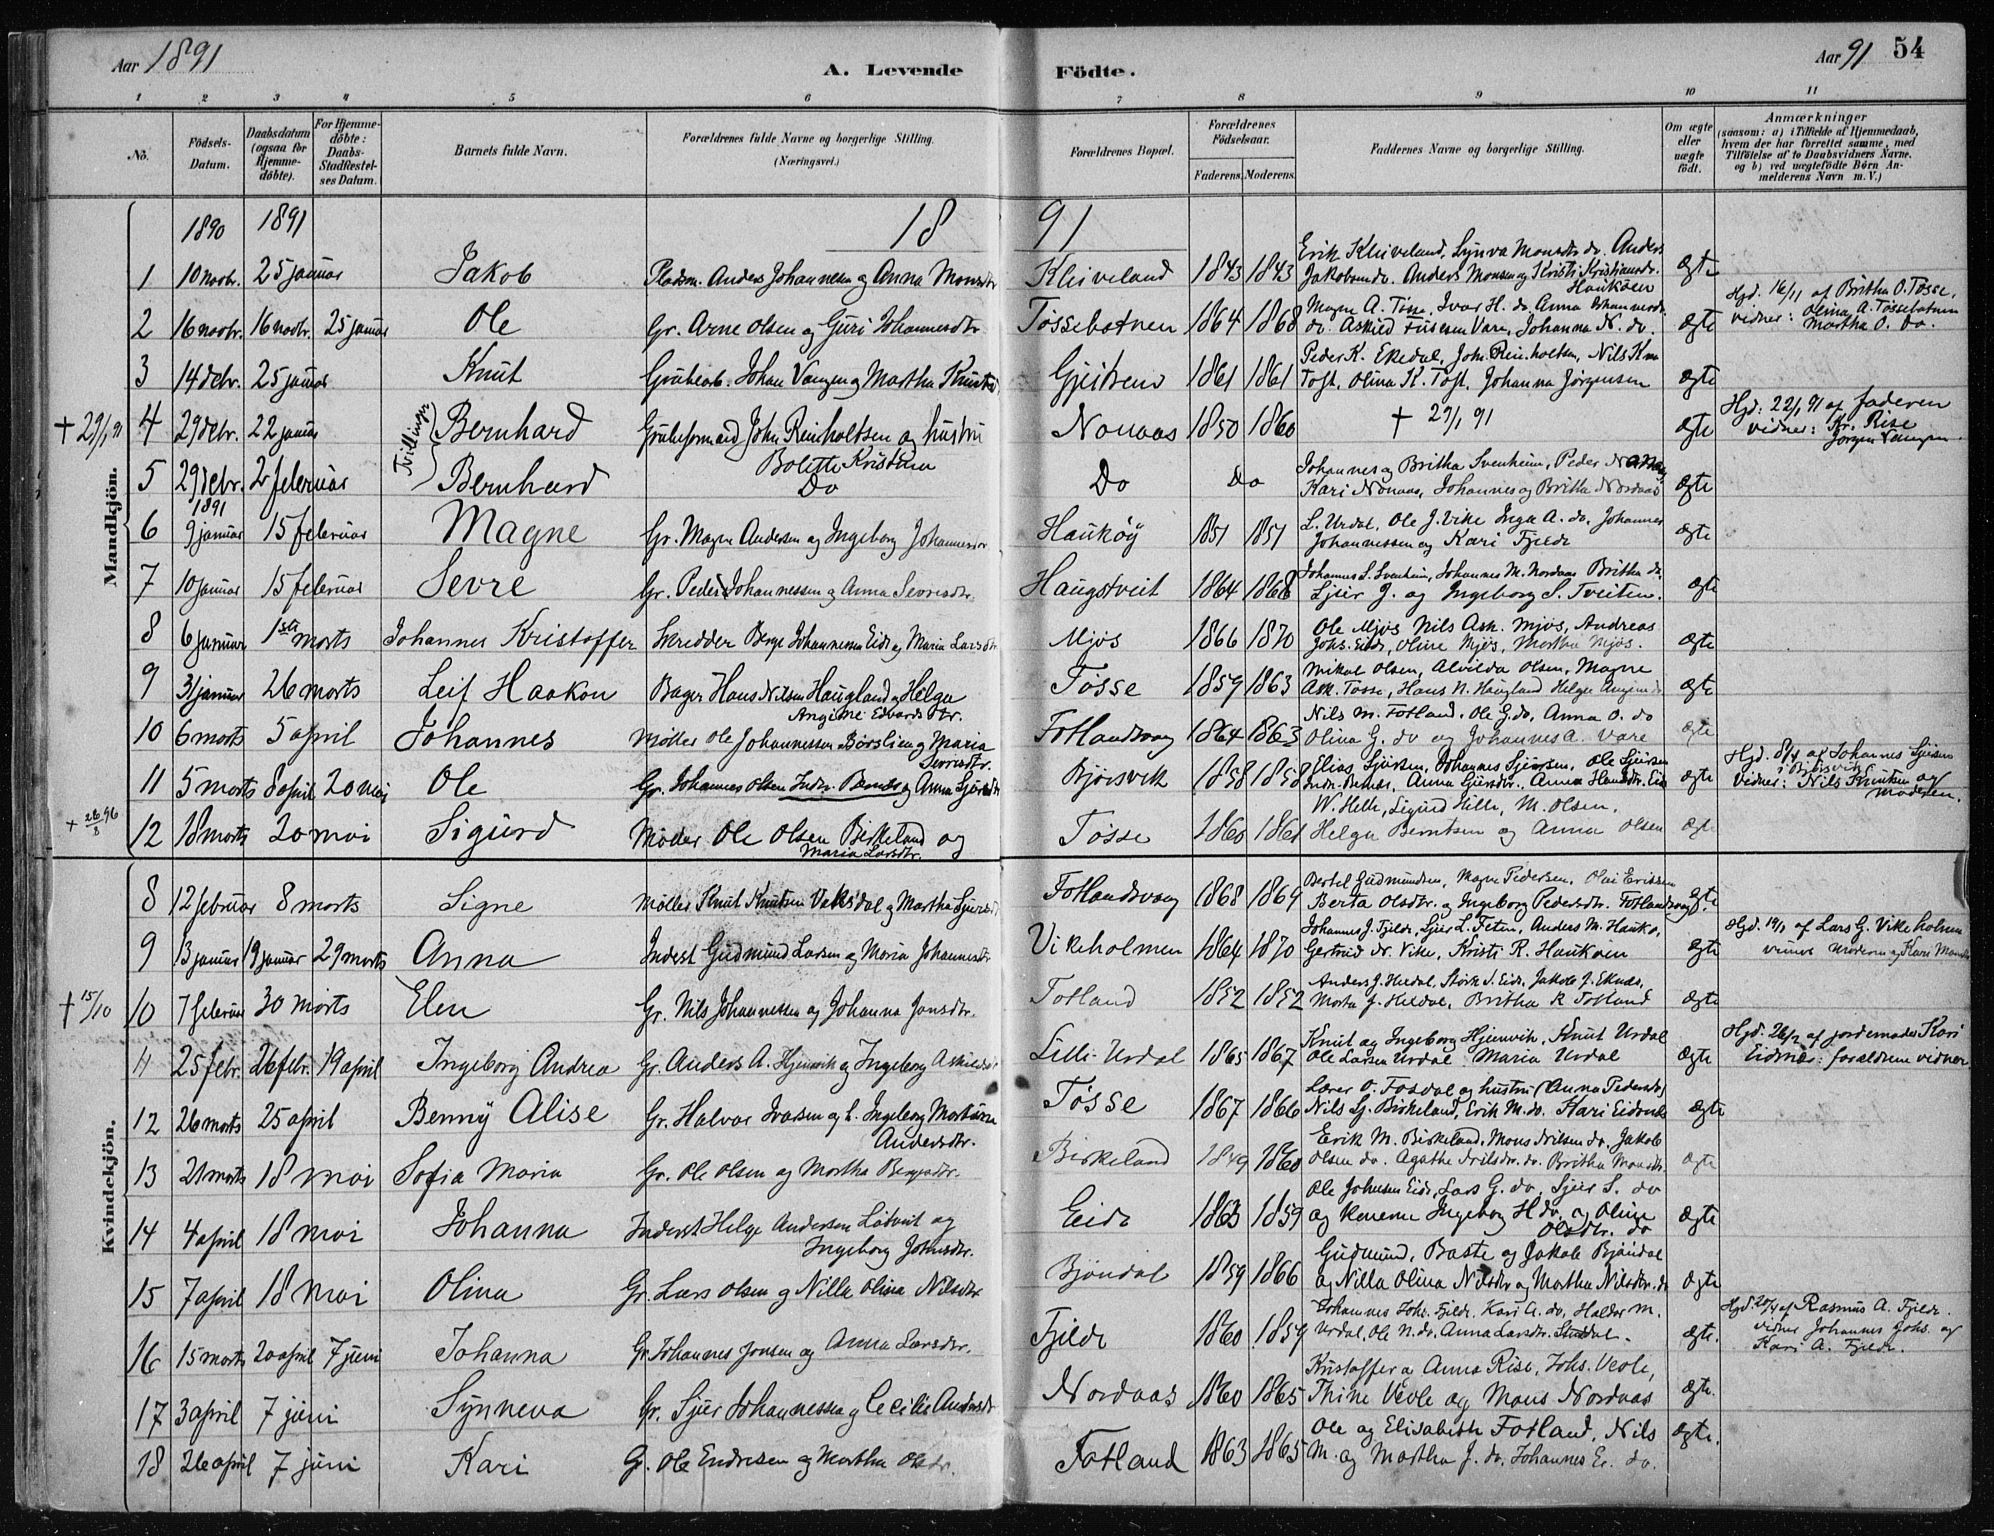 Aar 1891
A. Levende Födte.
Aar 91 54
1 2 3 4 5 6 7 8 9 10 11
No.
Födsels-Datum.
Daabsdatum (ogsaa for Hjemme-døbte).
For Hjemme-döbte: Daabs-Stadfestel-ses Datum.
Barnets fulde Navn.
Forældrenes fulde Navne og borgerlige Stilling.
(Næringsvei.)
Forældrenes Bopæl.
Forældrenes Födselsaar.
Faderens. Moderens.
Faddernes Navne og borgerlige Stilling.
Om ægte eller uægte födt.
Anmærkninger
(saasom: a) i Tilfælde af Hjemmedaab, hvem der har forrettet samme, med Tilföielse af to Daabsvidners Navne, og b) ved uægtefödte Børn An-melderens Navn m. V.)
Mandkjön.
1890 1891 18 91
1 10 novbr. 25 januar Jakob Pladsm. Anders Johannesen og Anna Monsdtr Kleiveland 1843 1843 Erik Kleiveland, Synva Monsdtr do. Anders
Jakobsen do. Anders Monsen og Kristi Kristiansdr. Haukøen ægte
2 16 novbr. 16 novbr. 25 januar Ole Gr. Arne Olsen og Guri Johannesdtr Tøssebotnen 1864 1868 ægte
Hjd. 16/11 af Britha O. Tøsse.
vidner: Olina A. Tøssebotnen
Martha O. do.
3 14 debr. 25 januar Knut Grubearb. Johan Vangen og Martha Knutsd. 1861 1861 Peder K. Ekedal, Joh. Reinholtsen, Nils
Toft, Olina K. Toft, Johanna Jørgensen ægte
† 29/1 91 4 29 debr. 22 januar Tvillinger Bernhard Grubeformand John Reinholtsen og hustru
Bolette Kristina Nonaas 1850 1860 † 29/1 91 ægte
Hjd: 22/1 91 af faderen
vidner: Kr. Rise
Jørgen Vangen.
5 29 debr. 2 februar Bernhard Do Do Do Johannes og Britha Svenheim, Peder
Kari Nonaas, Johannes og Britha Nordaas ægte
1891
6 9 januar 15 februar Magne Gr. Magne Andersen og Ingeborg Johannesdtr Haukøy 1851 1851 L. Urdal, Ole J. Vike Inga A. do, Johannes
Johannessen og Kari Fjelde ægte
7 10 januar 15 februar Sevre Gr. Peder Johannessen og Anna Sevresdtr. Haugstveit 1864 1868 Johannes S. Svenheim, Johannes M. Nordaas Britha do.
Sjur J. og Ingeborg S. Tveiten. ægte
8 6 januar 1ste marts Johannes Kristoffer Skredder Berge Johannesen Eide og Maria Larsdtr Mjøs 1866 1870 Ole Mjøs Nils Ask. Mjøs, Andreas
Johs. Eide, Oline Mjøs, Martha Mjøs. ægte
9 31 januar 26 marts Leif Haakon Bager Hans Nilsen Haugland og Helga
Angine Edvardsdtr. Tøsse 1859 1863 Mikal Olsen, Alvilda Olsen, Magne
Ask. Tøsse, Hans N. Haugland Helga ægte
10 6 marts 5 april Johannes Møller Ole Johannessen Børslien og Maria
Sevresdtr. Fotlandsvaag 1864 1863 Nils M. Fotland, Ole G. do, Anna O. do
Olina G. do og Johannes A. Vare ægte
11 5 marts 8 april 20 mai Ole Gr. Johannes Olsen Indr. Børnes og Anna Sjursdtr Bjørsvik 1858 1858 Elias Sjursen, Johannes Sjursen, Ole Sjursen ægte
Hjd. 8/4 af Johannes Sjursen
i Bjørsvik
vidner: Nils Knutsen og
moderen.
+ 26/8 96 12 18 marts 20 mai Sigurd Møller Ole Olsen Birkeland og
Maria Larsdtr. Tøsse 1860 1861 W. Helle, Sigurd Helle, M. Olsen,
Helga Berntsen og Anna Olsen ægte
Kvindekjön.
8 12 februar 8 marts Signe Møller Knut Knutsen Vaksdal og Martha Sjursdtr Fotlandsvaag 1868 1869 Bertel Gudmundsen, Magne Pedersen, Erissen
Berta Olsdtr. og Ingeborg Pedersdtr. Fotlandsvaag. ægte
9 13 januar 19 januar 29 marts Anna Inderst Gudmund Larsen og Maria Johannesdtr Vikeholmen 1864 1870 Johannes J. Fjelde, Sjur L. Feten, Anders M. Haukø,
Gertrud do. Vike, Kristi R. Haukøen ægte
Hjd. 19/1 af Lars G. Vikeholmen
vidner moderen og Kari
† 15/10 10 7 februar 30 marts Elen Gr. Nils Johannessen og Johanna Jonsdtr. Fotland 1852 1852 Anders J. Hildal, Størk S. Eide, Jakob J.
Marta J. Hildal, Britha K. Fotland ægte
11 25 febr. 26 febr. 19 april Ingeborg Andrea Gr. Anders A. Hjemvik og Ingeborg Lille-Urdal 1865 1867 Knut og Ingeborg Hjemvik, Knut Urdal
Ole Larsen Urdal, Maria Urdal ægte
Hjd. 26/2 af jordemoder Kari
Eidnæs: forældrene vidner
12 26 marts 25 april Benny Alise Gr. Halvor Ivarsen og h. Ingeborg Martine
Andersdtr. Tøsse 1867 1866 Lærer O. Fosdal og hustru (Anna Pedersdtr)
Nils Sj. Birkeland, Erik M. do. Kari Eidnæs ægte
13 21 marts 18 mai Sofia Maria Gr. Ole Olsen og Martha Bergesdtr. Birkeland 1849 1860 Erik M. Birkeland, Mons Nilsen do, Jakob
Olsen do. Agathe Nilsdr. do. Britha Monsdtr. ægte
14 4 april 18 mai Johanna Inderst Helge Andersen Løtveit og
Ingeborg Johsdtr. Eide 1863 1859 Ole Johnsen Eide, Lars G. do, Sjur S. do
og konerne Ingeborg H. do. og Oline
Olsdtr. do ægte
15 7 april 18 mai Olina Gr. Lars Olsen og Nilla Olina Nilsdtr Bjøndal 1859 1866 Gudmund, Baste og Jakob Bjøndal
og Nilla Olina Nilsdtr og Martha Nilsdtr. do ægte
16 15 marts 20 april 7 juni Johanna Gr. Johannes Jonsen og Anna Larsdtr. Fjelde 1860 1859 Johannes Johs. Fjelde, Kari A. do, Halder M.
Urdal, Ole N. do. Anna Larsdr. ægte.
Hjd. 20/4 af Rasmus A. Fjelde.
vidner Johannes Johs. og
Kari A. Fjelde.
17 3 april 7 juni Synneva Gr. Sjur Johannessen og Cecilie Andersdtr Nordaas 1860 1865 Kristoffer og Anna Rise, Johs. Veole,
Thine Veole og Mons Nordaas ægte.
18 26 april 7 juni Kari G. Ole Endresen og Martha Olsdtr. Fotland 1863 1865 Ole og Elisabeth Fotland, Nils
M. og Martha J. do, Johannes E. do. ægte.